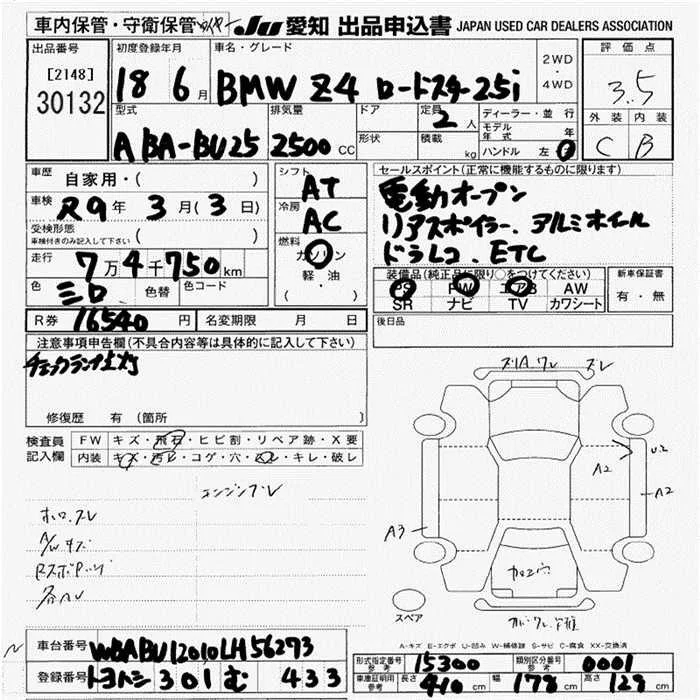 車内保管・守衛保管
JU 愛知 出品申込書 JAPAN USED CAR DEALERS ASSOCIATION
出品番号
[2148]
30132
初度登録年月
18 6月
車名・グレード
BMW Z4 ロードスター2.5i
2WD
・
4WD
評価点
3.5
外装 内装
C B
型式
ABA-BU25
排気量
2500 CC
ドア
形状
定員
2人
積載
kg
ディーラー・並行
モデル年式 年
ハンドル 左・
車歴
自家用・( )
車検
R9年 3月(3日)
受検形態
車検付きのみ記入して下さい ( )
走行
7万4千750km
色
色替
色コード
シフト
AT
冷房
AC
燃料
ガソリン
軽・油
( )
セールスポイント(正常に機能するものに限ります)
電動オープン
リアスポイラー、アルミホイール
ドラレコ、ETC
装備品(純正品に限り○をつけてください)
PS PW エアB AW
SR ナビ TV カワシート
新車保証書
有・無
R券 16540円
名変期限 月 日
後日品
注意事項申告欄(不具合内容等は具体的に記入して下さい)
チェックランプ点灯
修復歴 有(箇所 )
検査員
記入欄
FW キズ・飛石・ヒビ割・リペア跡・X要
内装 キズ・汚レ・コゲ・穴・スレ・キレ・破レ
エンジンスレ
A/Wキズ
A2
A2
A3
スペア
A-キズ E-エクボ U-凹み W-補修跡 S-サビ C-腐食 XX-交換済
車台番号 WBABU12010LH56273
登録番号 トヨハシ 301 む 433
形式指定番号 参考 15300
類別区分番号 参考 0001
車庫証明用 参考 長さ 410cm 幅 178cm 高さ 129cm